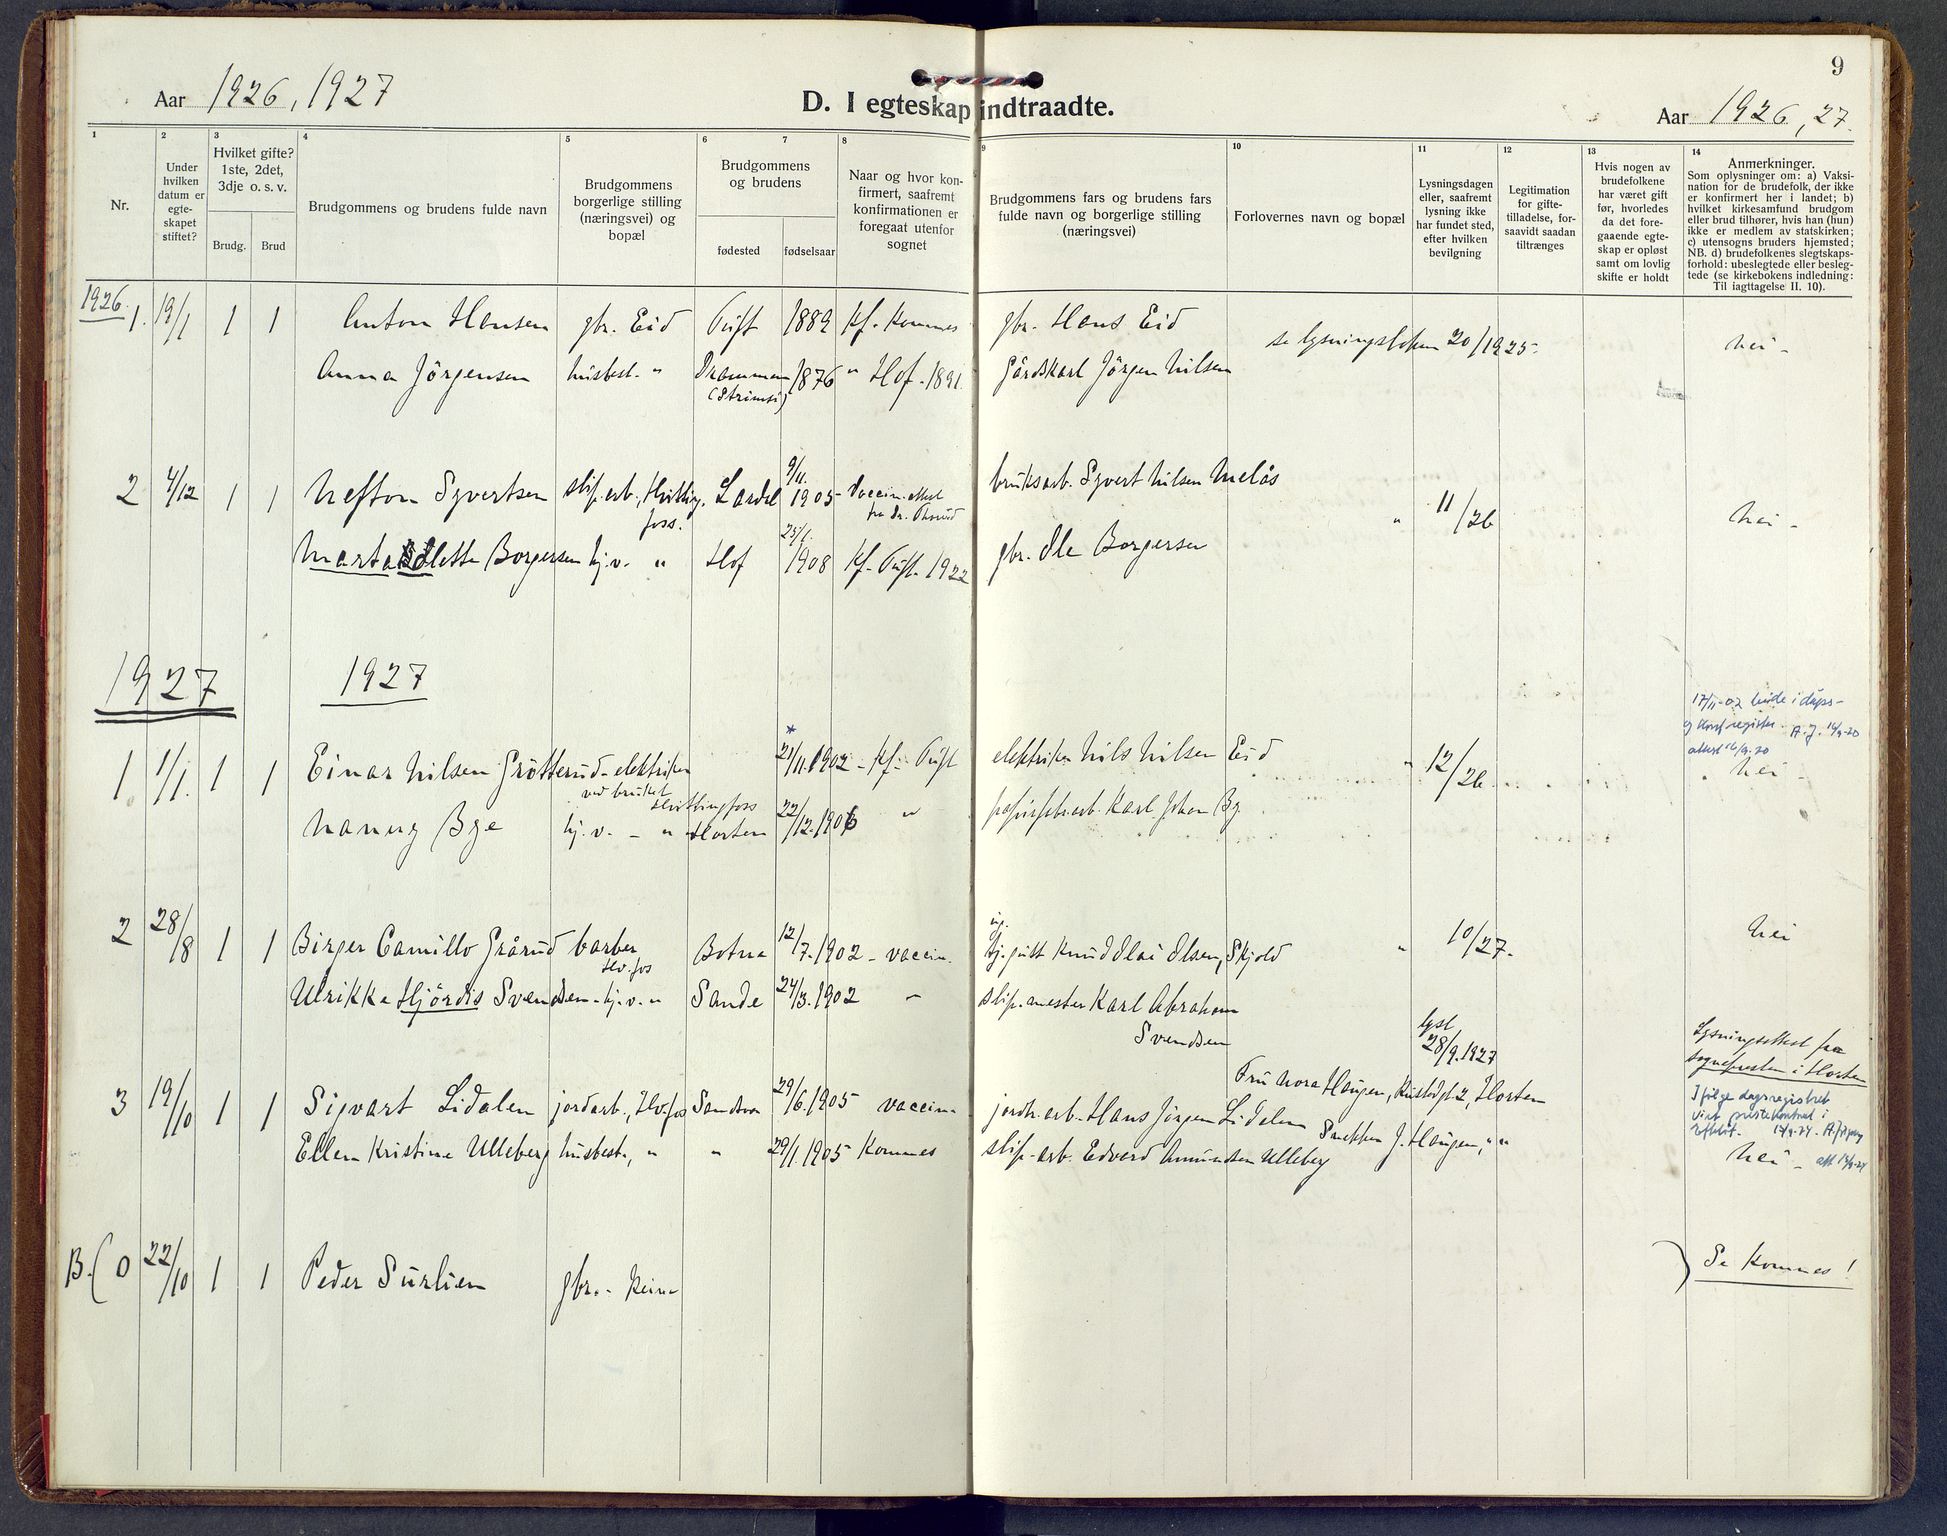 9
Aar 1926, 1927
D. I egteskap indtraadte.
Aar 1926, 27.
1
Nr.
2
Under
hvilken
datum er
egte-
skapet
stiftet?
3
Hvilket gifte?
1ste, 2det,
3dje o. s. v.
Brudg.
Brud
4
Brudgommens og brudens fulde navn
5
Brudgommens
borgerlige stilling
(næringsvei) og
bopæl
6
7
Brudgommens
og brudens
fødested
fødselsaar
8
Naar og hvor kon-
firmert, saafremt
konfirmationen er
foregaat utenfor
sognet
9
Brudgommens fars og brudens fars
fulde navn og borgerlige stilling
(næringsvei)
10
Forlovernes navn og bopæl
11
Lysningsdagen
eller, saafremt
lysning ikke
har fundet sted,
efter hvilken
bevilgning
12
Legitimation
for gifte-
tilladelse, for-
saavidt saadan
tiltrænges
13
Hvis nogen av
brudefolkene
har været gift
før, hvorledes
da det fore-
gaaende egte-
skap er opløst
samt om lovlig
skifte er holdt
14
Anmerkninger.
Som oplysninger om: a) Vaksi-
nation for de brudefolk, der ikke
er konfirmert her i landet; b)
hvilket kirkesamfund brudgom
eller brud tilhører, hvis han (hun)
ikke er medlem av statskirken;
c) utensogns bruders hjemsted;
NB. d) brudefolkenes slegtskaps-
forhold: ubeslegtede eller besleg-
tede (se kirkebokens indledning:
Til iagttagelse II. 10).
1926.
1. 19/1 1 1 Anton Hansen gbr. Eid Tuft 1889 kf. Komnes gbr. Hans Eid se lysningsboken 20/1925. nei -
Anna Jörgensen husbest. " Drammen 1876 " Hof. 1891. Gårdskarl Jörgen Nilsen
(Strömsö)
2 4/12 1 1 Nefton Syvertsen slip.arb., Hvitting- Lardal 9/11 1905 Vaccin.attest bruksarb. Syvert Nilsen Melås " 11/26 nei -
foss. fra Dr.
Marta Olette Borgersen hj.v. " Hof 25/1. 1908 kf. Tuft. 1922 gbr. Ole Borgersen
1927 1927
17/11-02 både i dåps-
og konf.register. A.J. 16/9-20
attest 16/9.20
1. 1/1. 1 1 Einar Nilsen Grötterud - elektriker * 21/11.1902 - kf. Tuft elektriker Nils Nilsen Eid " 12/26 nei -
ved bruket Hvittingfoss
Nanny Bye hj.v. - " Horten 22/12.1906 " papirfabr.arb. Karl Johan By.
2 28/8 1 1 Birger Camillo Grårud barber Botne 12/7.1902 - vaccin. hj.gutt Knud Olai Olsen, Skjold " 10/27. nei
Hv.fos
Ulrikka Hjördis Svendsen - hj.v. " Sande 24/3.1902 - slip.mester Karl Abraham
Svendsen
lyst
28/9.1927
Lysningsattest fra
sognepresten i Horten
3 19/10 1 1 Sigvart Lidalen jordarb., Hv.fos Sandsvær 29/6.1905 vaccin. jordbr.arb. Hans Jörgen Lidalen Fru Nora Haugen, Rustadgt 2, Horten
I følge dåpsregistret
Ellen Kristine Ulleberg husbest., " " 29/1.1905 Komnes slip.arb. Edvard Amundsen Ulleberg Snekker J. Haugen, " "
nei -
B. ( 0 22/10 1 1 Peder Surlien gbr. - ) Se Komnes!